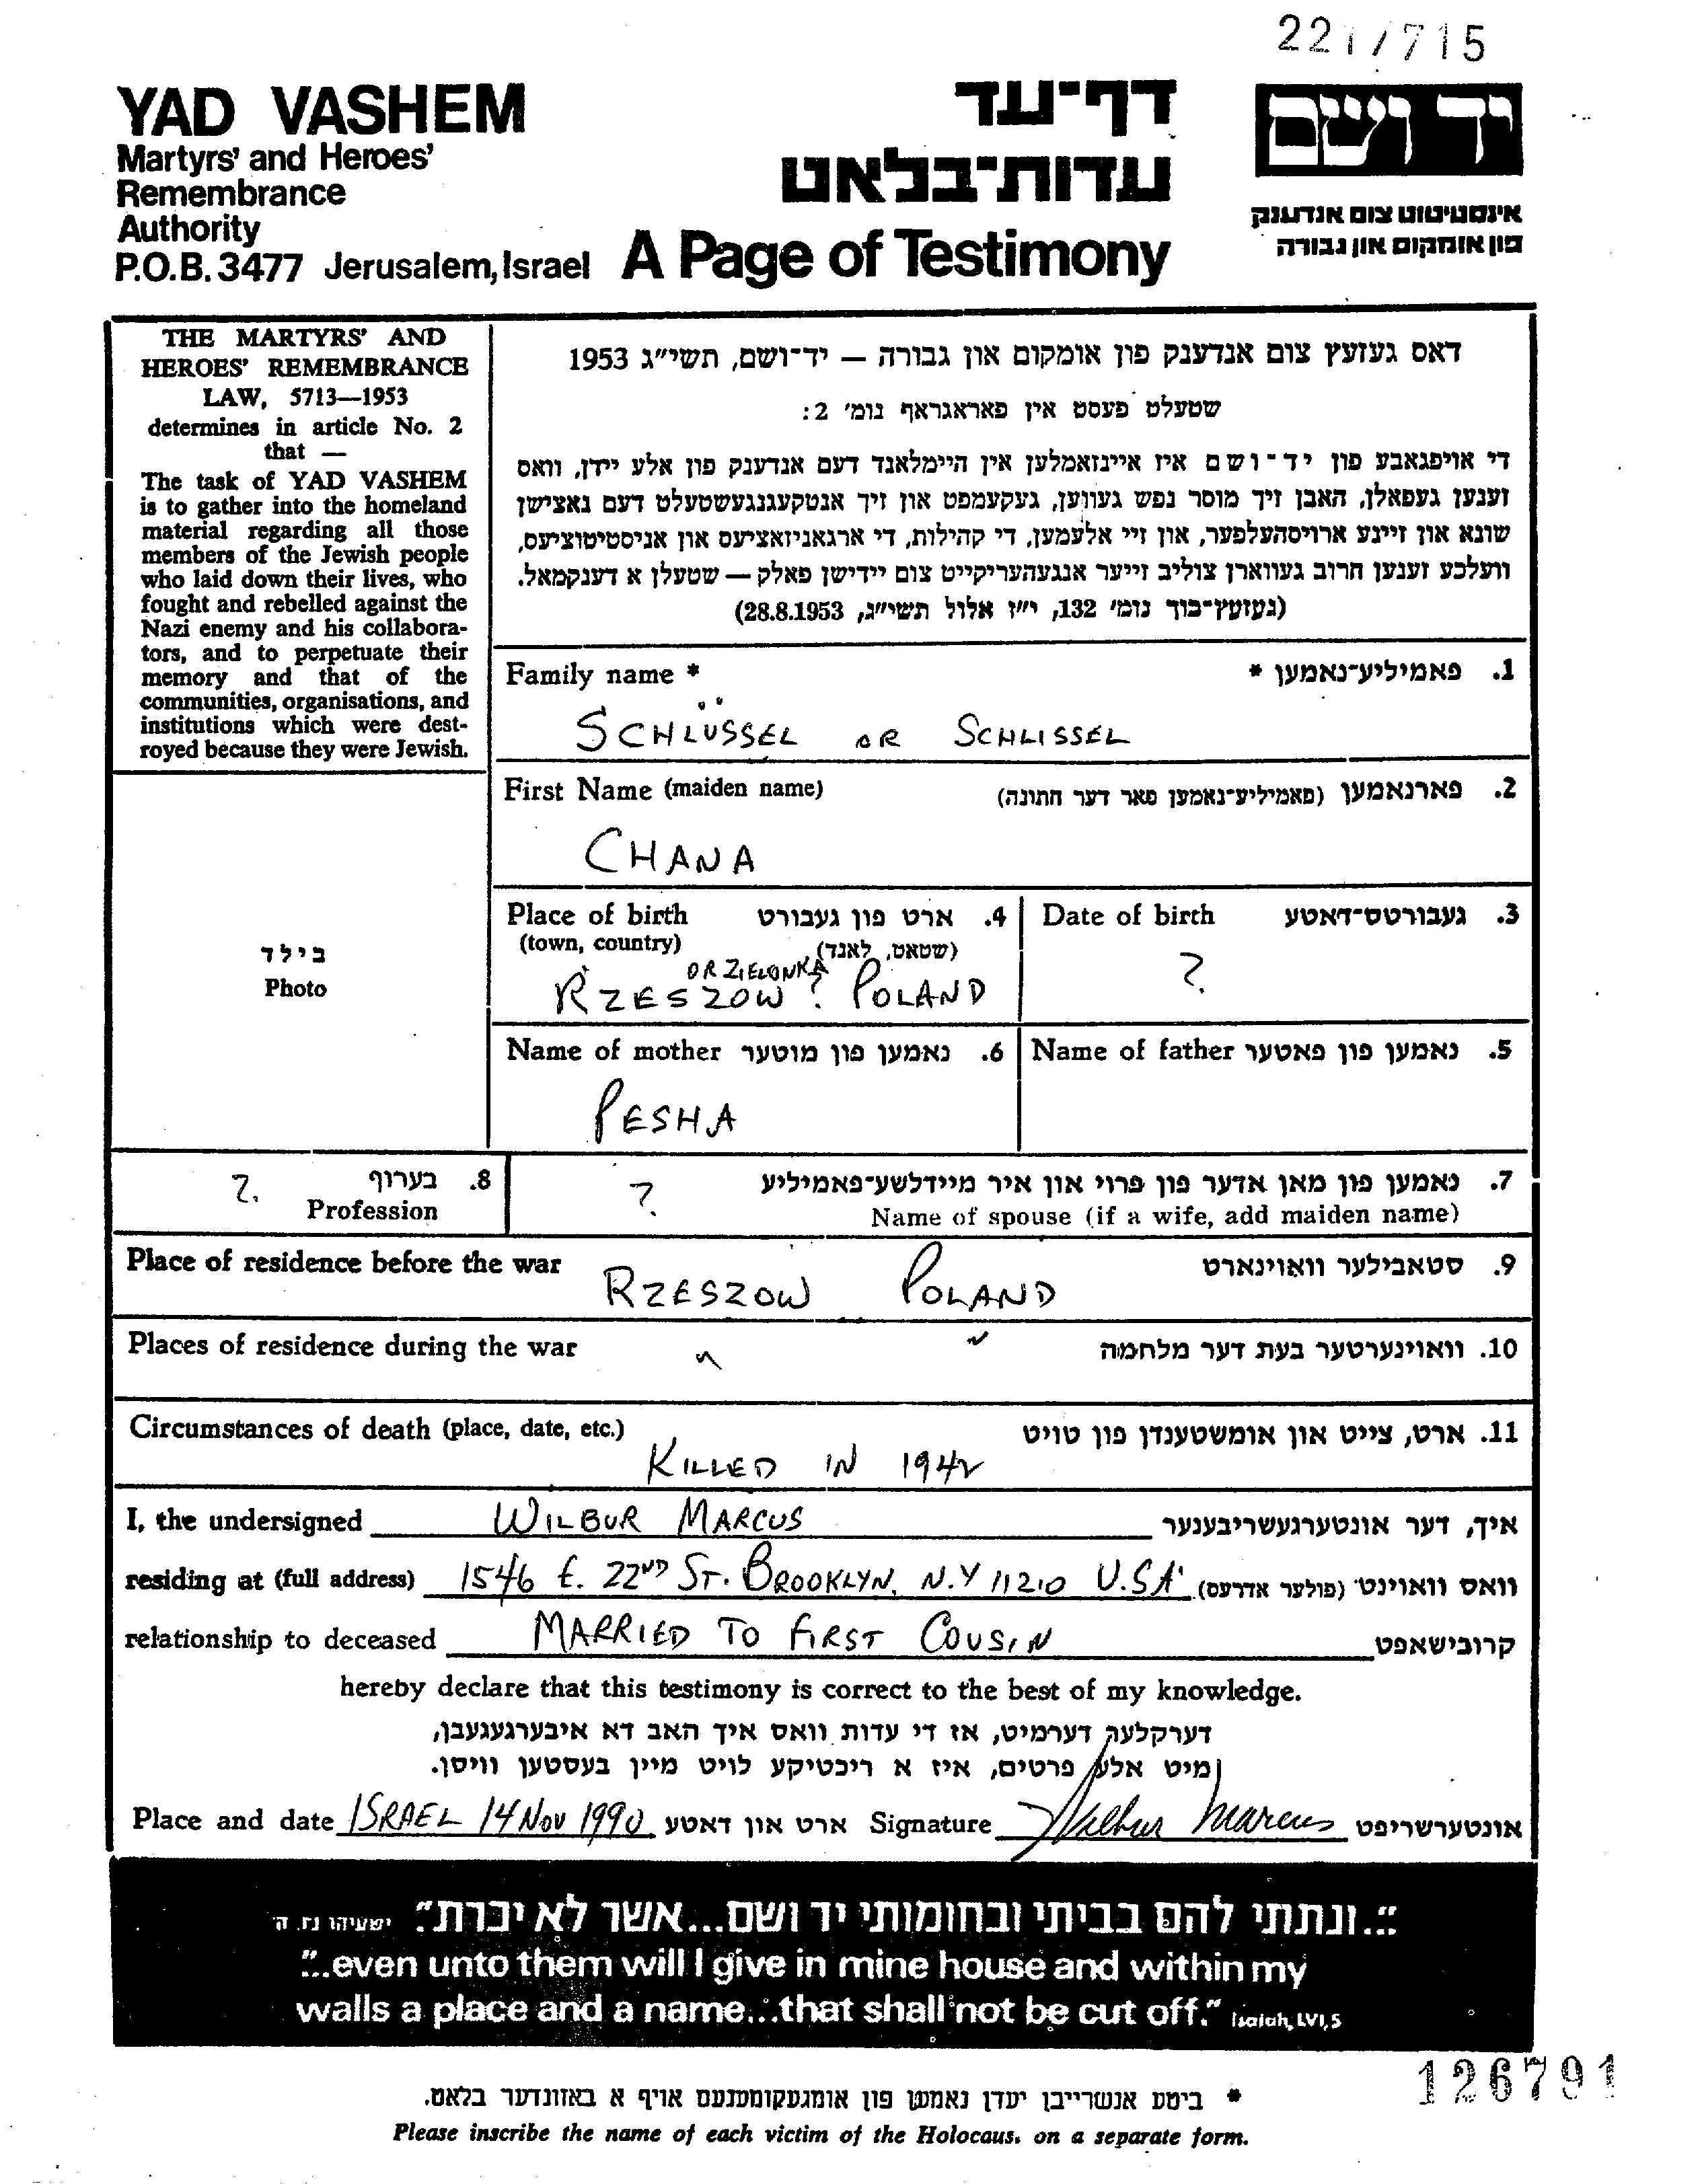 221/715
YAD VASHEM
Martyrs' and Heroes'
Remembrance
Authority
P.O.B. 3477 Jerusalem, Israel
דף־עד
עדות־בלאט
A Page of Testimony
יד ושם
אינסטיטוט צום אנדענק
פון אומקום און גבורה
THE MARTYRS' AND
HEROES' REMEMBRANCE
LAW, 5713—1953
determines in article No. 2
that —
The task of YAD VASHEM
is to gather into the homeland
material regarding all those
members of the Jewish people
who laid down their lives, who
fought and rebelled against the
Nazi enemy and his collabora-
tors, and to perpetuate their
memory and that of the
communities, organisations, and
institutions which were dest-
royed because they were Jewish.
דאס געזעץ צום אנדענק פון אומקום און גבורה — יד־ושם, תשי״ג 1953
שטעלט פעסט אין פאראגראף נומ׳ 2:
די אויפגאבע פון יד־ושם איז איינזאמלען אין היימלאנד דעם אנדענק פון אלע יידן, וואס
זענען געפאלן, האבן זיך מוסר נפש געווען, געקעמפט און זיך אנטקעגנגעשטעלט דעם נאצישן
שונא און זיינע ארויסהעלפער, און זיי אלעמען, די קהילות, די ארגאניזאציעס און אניסטיטוציעס,
וועלכע זענען חרוב געווארן צוליב זייער אנגעהעריקייט צום יידישן פאלק — שטעלן א דענקמאל.
(געזעץ־בוך נומ׳ 132, י״ז אלול תשי״ג, 28.8.1953)
Family name * 1. פאמיליע־נאמען *
SCHLÜSSEL OR SCHLISSEL
First Name (maiden name) 2. פארנאמען (פאמיליע־נאמען פאר דער חתונה)
CHANA
בילד
Photo
Place of birth 4. ארט פון געבורט
(town, country) (שטאט, לאנד)
OR ZIELONKA
RZESZOW? POLAND
Date of birth 3. געבורטס־דאטע
?
Name of mother 6. נאמען פון מוטער
PESHA
Name of father 5. נאמען פון פאטער
8. בערוף
?.
Profession
7. נאמען פון מאן אדער פון פרוי און איר מיידלשע־פאמיליע
?
Name of spouse (if a wife, add maiden name)
Place of residence before the war 9. סטאבילער וואוינארט
RZESZOW POLAND
Places of residence during the war 10. וואוינערטער בעת דער מלחמה
Circumstances of death (place, date, etc.) 11. ארט, צייט און אומשטענדן פון טויט
KILLED IN 1942
I, the undersigned WILBUR MARCUS איך, דער אונטערגעשריבענער
residing at (full address) 1546 E. 22ND ST. BROOKLYN, N.Y 11210 U.S.A. וואס וואוינט (פולער אדרעס)
relationship to deceased MARRIED TO FIRST COUSIN קרובישאפט
hereby declare that this testimony is correct to the best of my knowledge.
דערקלער דערמיט, אז די עדות וואס איך האב דא איבערגעגעבן,
מיט אלע פרטים, איז א ריכטיקע לויט מיין בעסטען וויסן.
Place and date ISRAEL 14 Nov 1990 ארט און דאטע Signature Wilbur Marcus אונטערשריפט
"...ונתתי להם בביתי ובחומותי יד ושם...אשר לא יכרת" ישעיהו נו, ה
"...even unto them will I give in mine house and within my
walls a place and a name...that shall not be cut off." Isaiah, LVI, 5
126791
* ביטע אנשרייבן יעדן נאמען פון אומגעקומענעם אויף א באזונדער בלאט.
Please inscribe the name of each victim of the Holocaus. on a separate form.